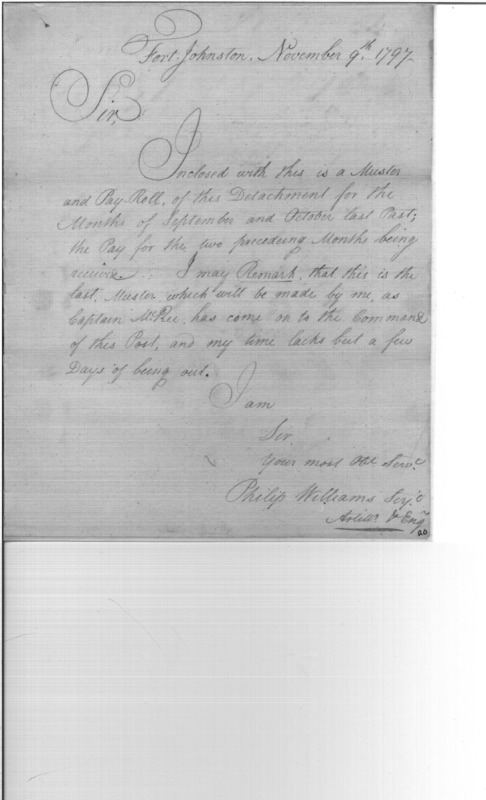 Fort Johnston. November 9th. 1797
Sir,
Inclosed with this is a Muster
and Pay Roll, of this Detachment for the
Months of September and October last Past;
the Pay for the two preceeding Months being
I may Remark, that this is the
last, Muster which will be made by me, as
Captain McRee, has come on to the Command
of this Post, and my time lacks but a few
Days of being out.
I am
Sir
Your most Obt Servt
Philip Williams Serjt
Artillr & Engr